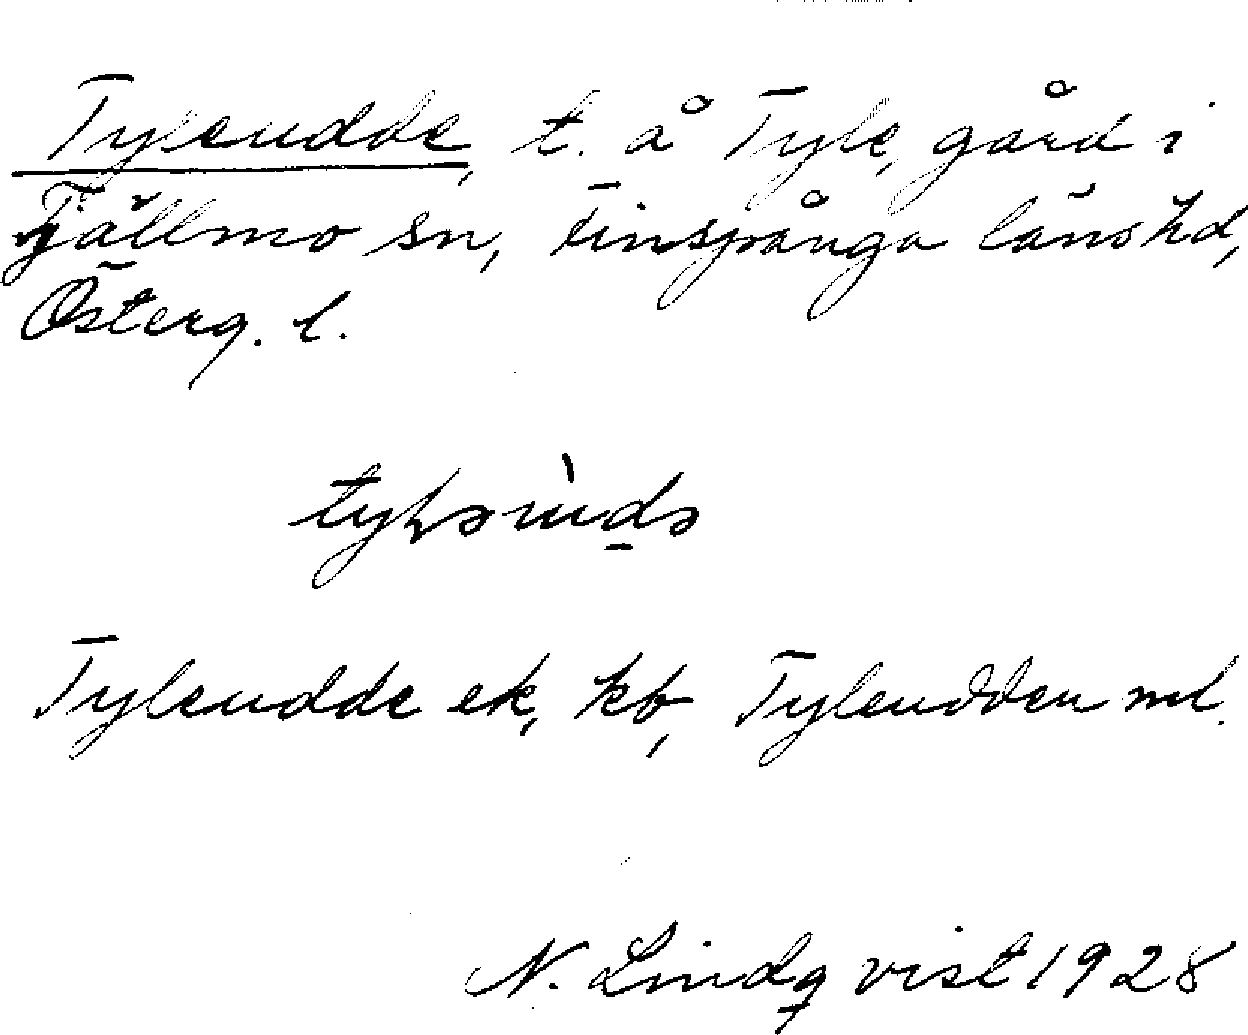 Tyleudde, t. å Tyle, gård i
Tjällmo sn, Finspånga länshd,
Österg. l.
Tyleudde ek, kb, Tyleudden ml.
N. Lindqvist 1928